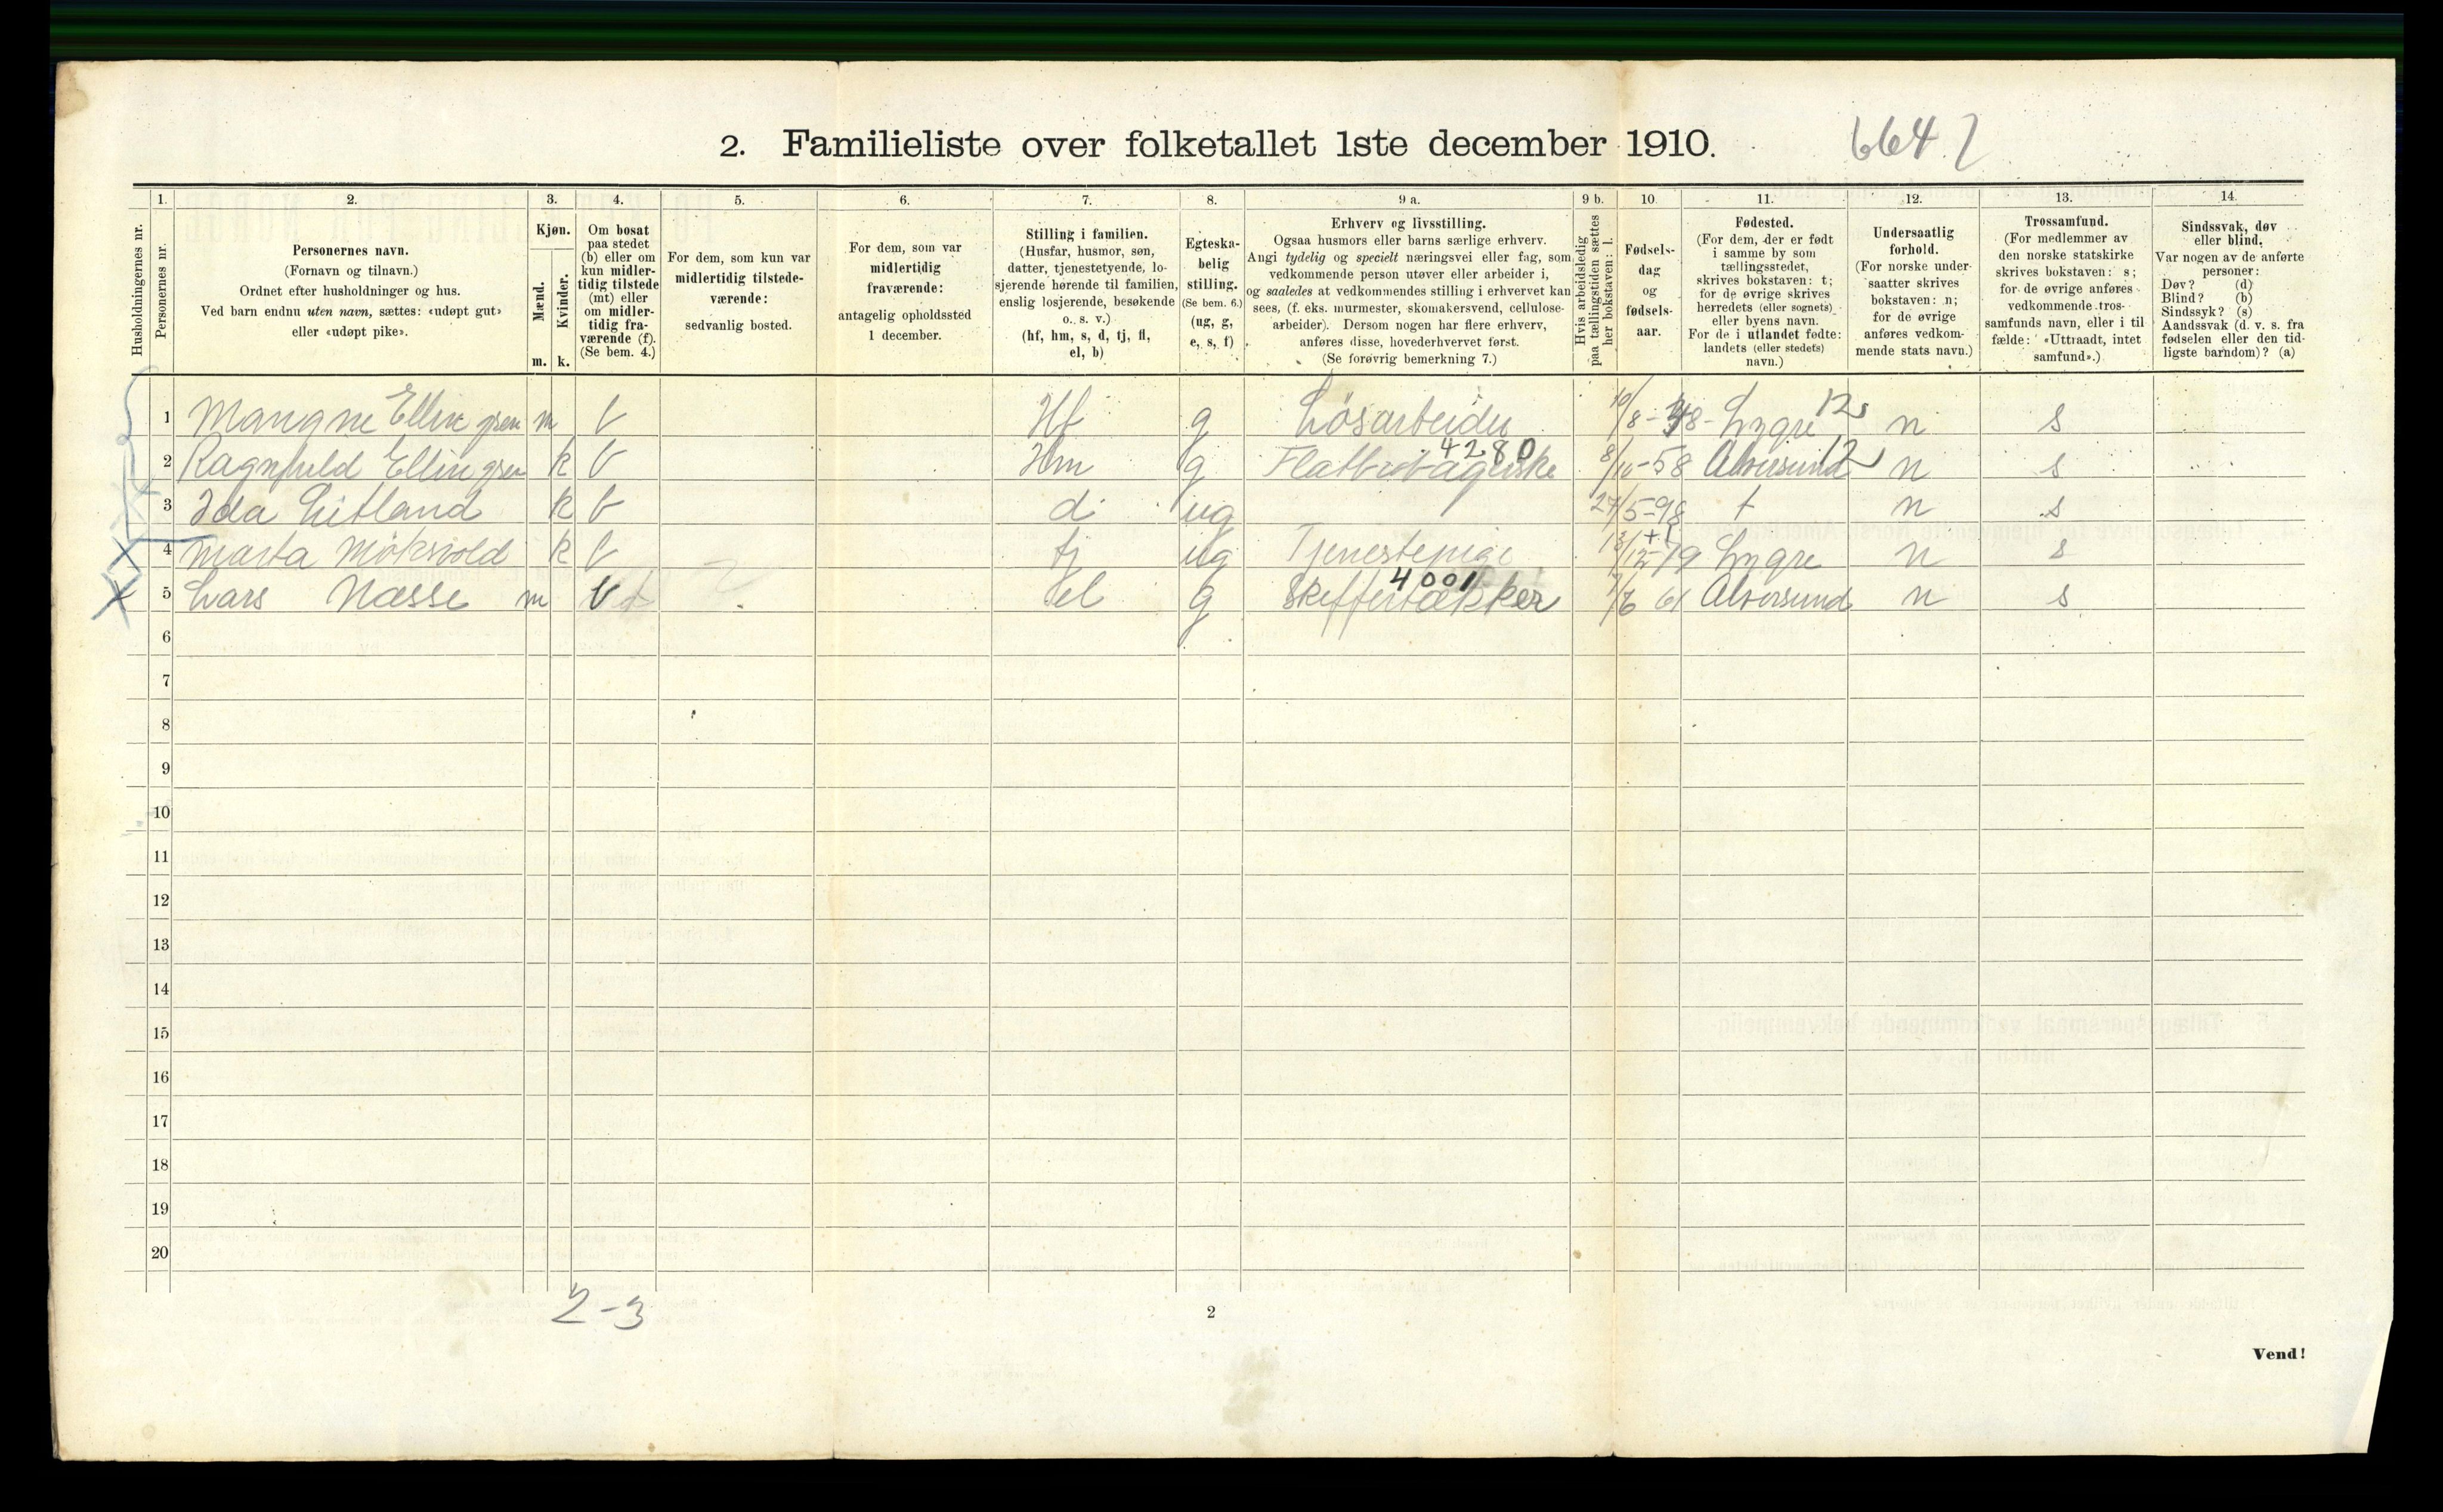 2. Familieliste over folketallet 1ste december 1910. 664.2
1. 2. 3. 4. 5. 6. 7. 8. 9 a. 9 b. 10. 11. 12. 13. 14.
Husholdningernes nr.
Personernes nr.
Personernes navn.
(Fornavn og tilnavn.)
Ordnet efter husholdninger og hus.
Ved barn endnu uten navn, sættes: «udøpt gut»
eller «udøpt pike».
Kjøn.
Mænd.
Kvinder.
m. k.
Om bosat
paa stedet
(b) eller om
kun midler-
tidig tilstede
(mt) eller
om midler-
tidig fra-
værende (f).
(Se bem. 4.)
For dem, som kun var
midlertidig tilstede-
værende:
sedvanlig bosted.
For dem, som var
midlertidig
fraværende:
antagelig opholdssted
1 december.
Stilling i familien.
(Husfar, husmor, søn,
datter, tjenestetyende, lo-
sjerende hørende til familien,
enslig losjerende, besøkende
o. s. v.)
(hf, hm, s, d, tj, fl,
el, b)
Egteska-
belig
stilling.
(Se bem. 6.)
(ug, g,
e, s, f)
Erhverv og livsstilling.
Ogsaa husmors eller barns særlige erhverv.
Angi tydelig og specielt næringsvei eller fag, som
vedkommende person utøver eller arbeider i,
og saaledes at vedkommendes stilling i erhvervet kan
sees, (f. eks. murmester, skomakersvend, cellulose-
arbeider). Dersom nogen har flere erhverv,
anføres disse, hovederhvervet først.
(Se forøvrig bemerkning 7.)
Hvis arbeidsledig
paa tællingstiden sættes
her bokstaven: l.
Fødsels-
dag
og
fødsels-
aar.
Fødested.
(For dem, der er født
i samme by som
tællingsstedet,
skrives bokstaven: t;
for de øvrige skrives
herredets (eller sognets)
eller byens navn.
For de i utlandet fødte:
landets (eller stedets)
navn.)
Undersaatlig
forhold.
(For norske under-
saatter skrives
bokstaven: n;
for de øvrige
anføres vedkom-
mende stats navn.)
Trossamfund.
(For medlemmer av
den norske statskirke
skrives bokstaven: s;
for de øvrige anføres
vedkommende tros-
samfunds navn, eller i til-
fælde: «Uttraadt, intet
samfund».)
Sindssvak, døv
eller blind.
Var nogen av de anførte
personer:
Døv? (d)
Blind? (b)
Sindssyk? (s)
Aandssvak (d. v. s. fra
fødselen eller den tid-
ligste barndom)? (a)
1 Mangne Ellingsen m b Hf g Løsarbeider 10/8-48 Lygre 12 n s
2 Ragnhild Ellingsen k b Hm g Flatbrøbagerske 4280 8/10-58 Alversund 12 n s
3 Ida Litland k b d ug 27/5-98 t n s
4 Marta Moksvold k b tj ug Tjenestepige 13/12-79 Lygre n s
5 Lars Næsse m b el g Skiffertækker 4001 7/6 61 Alversund n s
6 g
7
8
9
10
11
12
13
14
15
16
17
18
19
20
2-3
2
Vend!